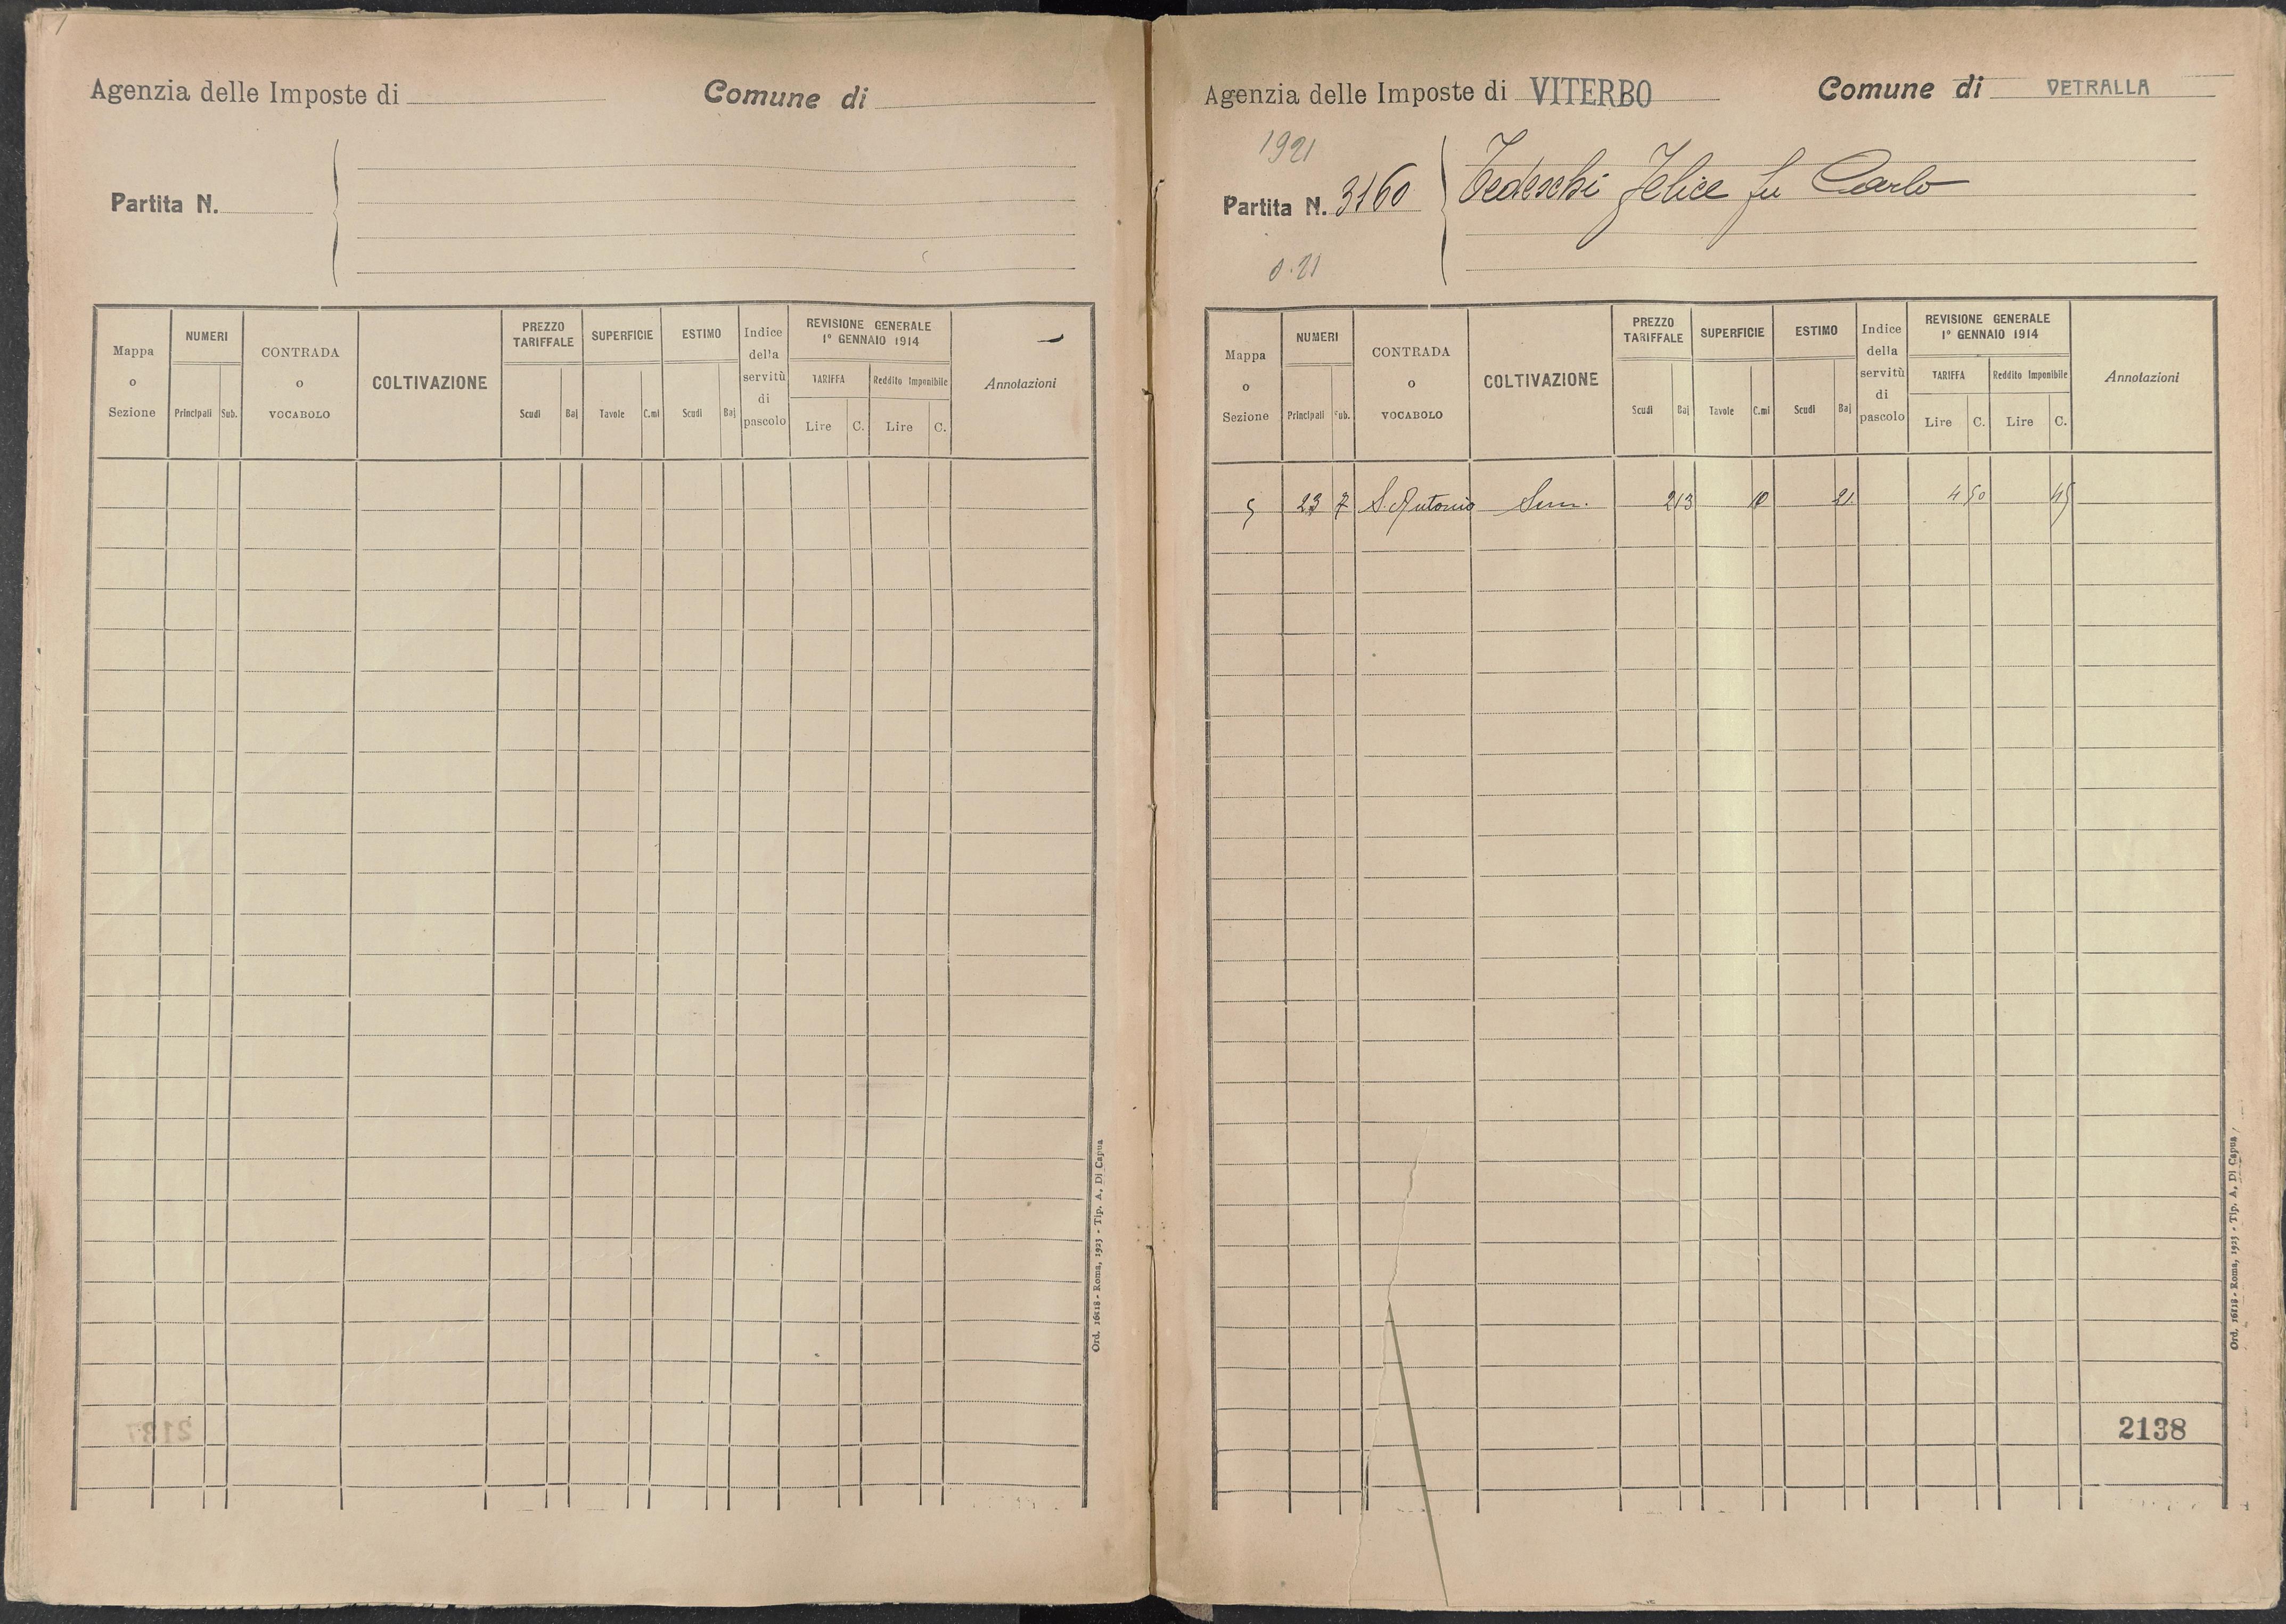 Agenzia delle Imposte di
Comune di
Partita N.
Mappa o Sezione
NUMERI
Principali
Sub.
CONTRADA o VOCABOLO
COLTIVAZIONE
PREZZO TARIFFALE
Scudi
Baj
SUPERFICIE
Tavole
C.mi
ESTIMO
Scudi
Baj
Indice della servitù di pascolo
REVISIONE GENERALE
1° GENNAIO 1914
TARIFFA
Lire
C.
Reddito Imponibile
Lire
C.
Annotazioni
Ord. 16818 - Roma, 1923 - Tip. A. Di Capua
2137
Agenzia delle Imposte di VITERBO
Comune di VETRALLA
1921
Partita N. 3160
Tedeschi Felice fu Carlo
0.21
Mappa o Sezione
NUMERI
Principali
Sub.
CONTRADA o VOCABOLO
COLTIVAZIONE
PREZZO TARIFFALE
Scudi
Baj
SUPERFICIE
Tavole
C.mi
ESTIMO
Scudi
Baj
Indice della servitù di pascolo
REVISIONE GENERALE
1° GENNAIO 1914
TARIFFA
Lire
C.
Reddito Imponibile
Lire
C.
Annotazioni
5 23 7 S. Antonio Sem. 213 10 21 4 50 45
2138
Ord. 16818 - Roma, 1923 - Tip. A. Di Capua